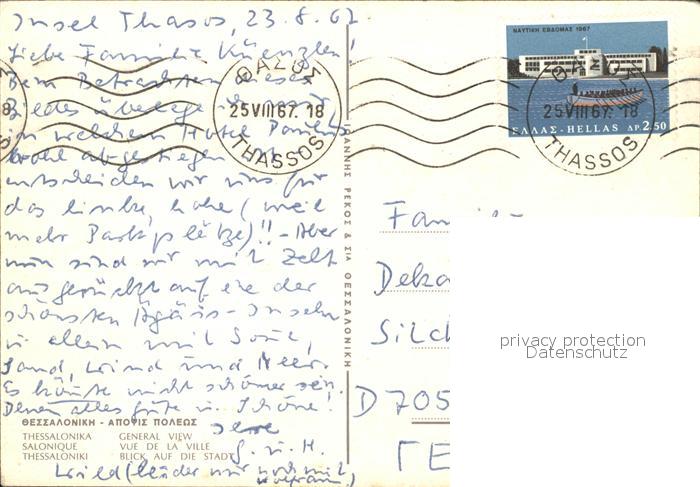 Insel Thasos, 23.8.67
Liebe Familie Künzlen!
Beim Betrachten dieses
Bildes überlege ich mir
in welchem Hotel Familie
wohl abgestiegen
entscheiden wir uns für
das linke, hohe (weil
mehr Parkplätze)!! - Aber
nun sind wir mit Zelt
ausgerückt auf eine der
schönsten Ägäis-Inseln
allein mit Sonne,
Sand, Wind und Meer.
Es könnte nicht schöner sein.
Ihnen alles gute u. Schöne!
Ihre
G. u. H.
Wild (leider nur noch mit
ΘΕΣΣΑΛΟΝΙΚΗ - ΑΠΟΨΙΣ ΠΟΛΕΩΣ
THESSALONIKA GENERAL VIEW
SALONIQUE VUE DE LA VILLE
THESSALONIKI BLICK AUF DIE STADT
ΓΙΑΝΝΗΣ ΡΕΚΟΣ & ΣΙΑ ΘΕΣΣΑΛΟΝΙΚΗ
ΘΑΣΟΣ
25 VIII 67. 18
THASSOS
ΝΑΥΤΙΚΗ ΕΒΔΟΜΑΣ 1967
ΕΛΛΑΣ-HELLAS ΔΡ. 2.50
ΘΑΣΟΣ
25 VIII 67. 18
THASSOS
Fam
Deka
Silch
D 705
ΓΕ
privacy protection
Datenschutz